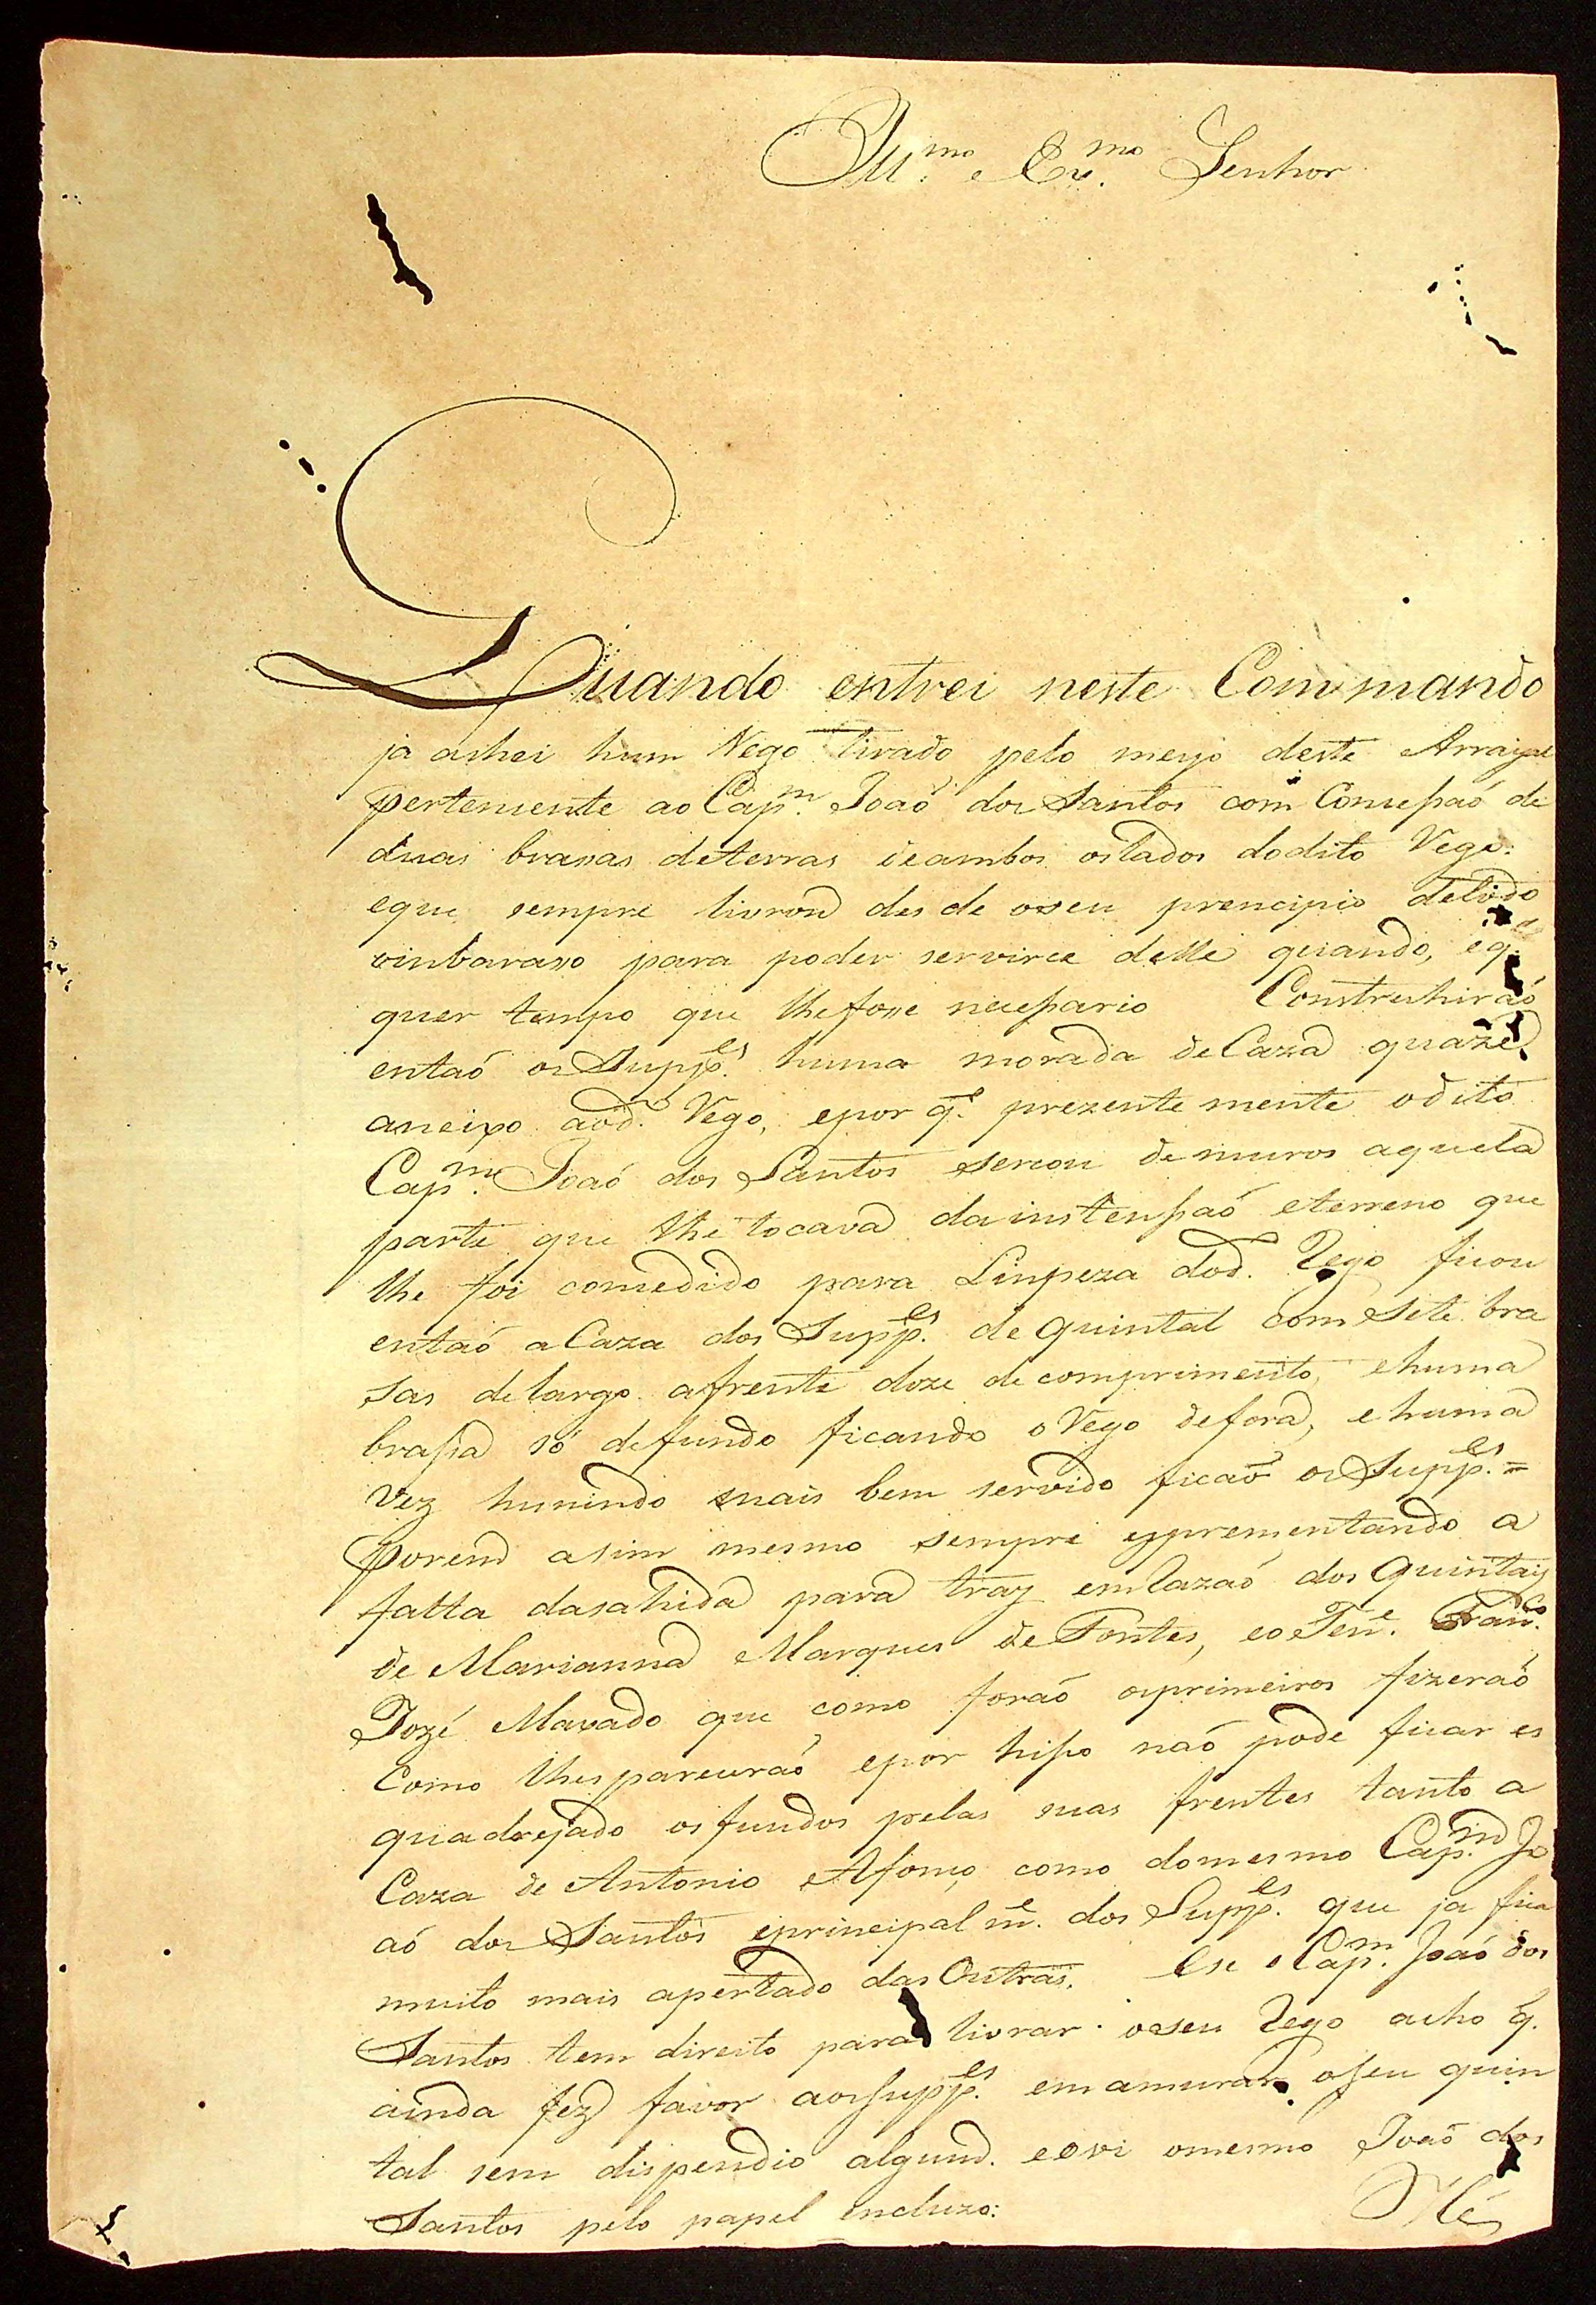 Ill.mo e Ex.mo Senhor
Quando entrei neste Commando
ja achei hum Rego tirado pelo meyo deste Arrayal
pertencente ao Cap.m Joaõ dos Santos com Conceſsaõ de
duas brasas deterras deambos oslados dodito Rego:
eque sempre livrou des de oseu principio detodo
vinbaraso para poder servirce delle quando, eq.
quer tempo que lhefosse neceſsario Construhiraõ
entaõ os Supp.es huma morada deCaza quaze
aneixo aod.o Rego, epor q.e prezente mente odito
Cap.m Joaõ dos Santos sercou demuros aquela
parte que lhe tocava dainstenſsaõ eterreno que
lhe foi comcedido para Linpeza dod. Rego ficou
entaõ aCaza dos Supp.es de quintal com sete bra
sas delargo afrente doze decomprimento, ehuma
braſsa só defundo ficando oRego defora, ehuma
vez hunindo mais bem servido ficaõ os Supp.es =
porem asim mesmo sempre exprementando a
falta dasahida para traz emRazaõ dos Quintais
de Marianna Marques de Fontes, eoTen.e Fran.co
Jozé Maxado que como foraõ osprimeiros fizeraõ
Como lhespareceraõ epor hiſso naõ pode ficar es
quadrejado osfundos pelas suas frentes tanto a
Caza de Antonio Afonço, como domesmo Cap.m Jo
aõ dos Santos eprincipal m.e dos Supp.es que ja fica
muito mais apertado das Outras. Ese o Cap.m Joaõ dos
Santos tem direito para livrar oseu Rego acho q.
ainda fez favor aosSupp.es em amurar oſeu quin
tal sem dispendio algum. eovi omesmo Joaõ dos
Santos pelo papel incluzo:
Hé